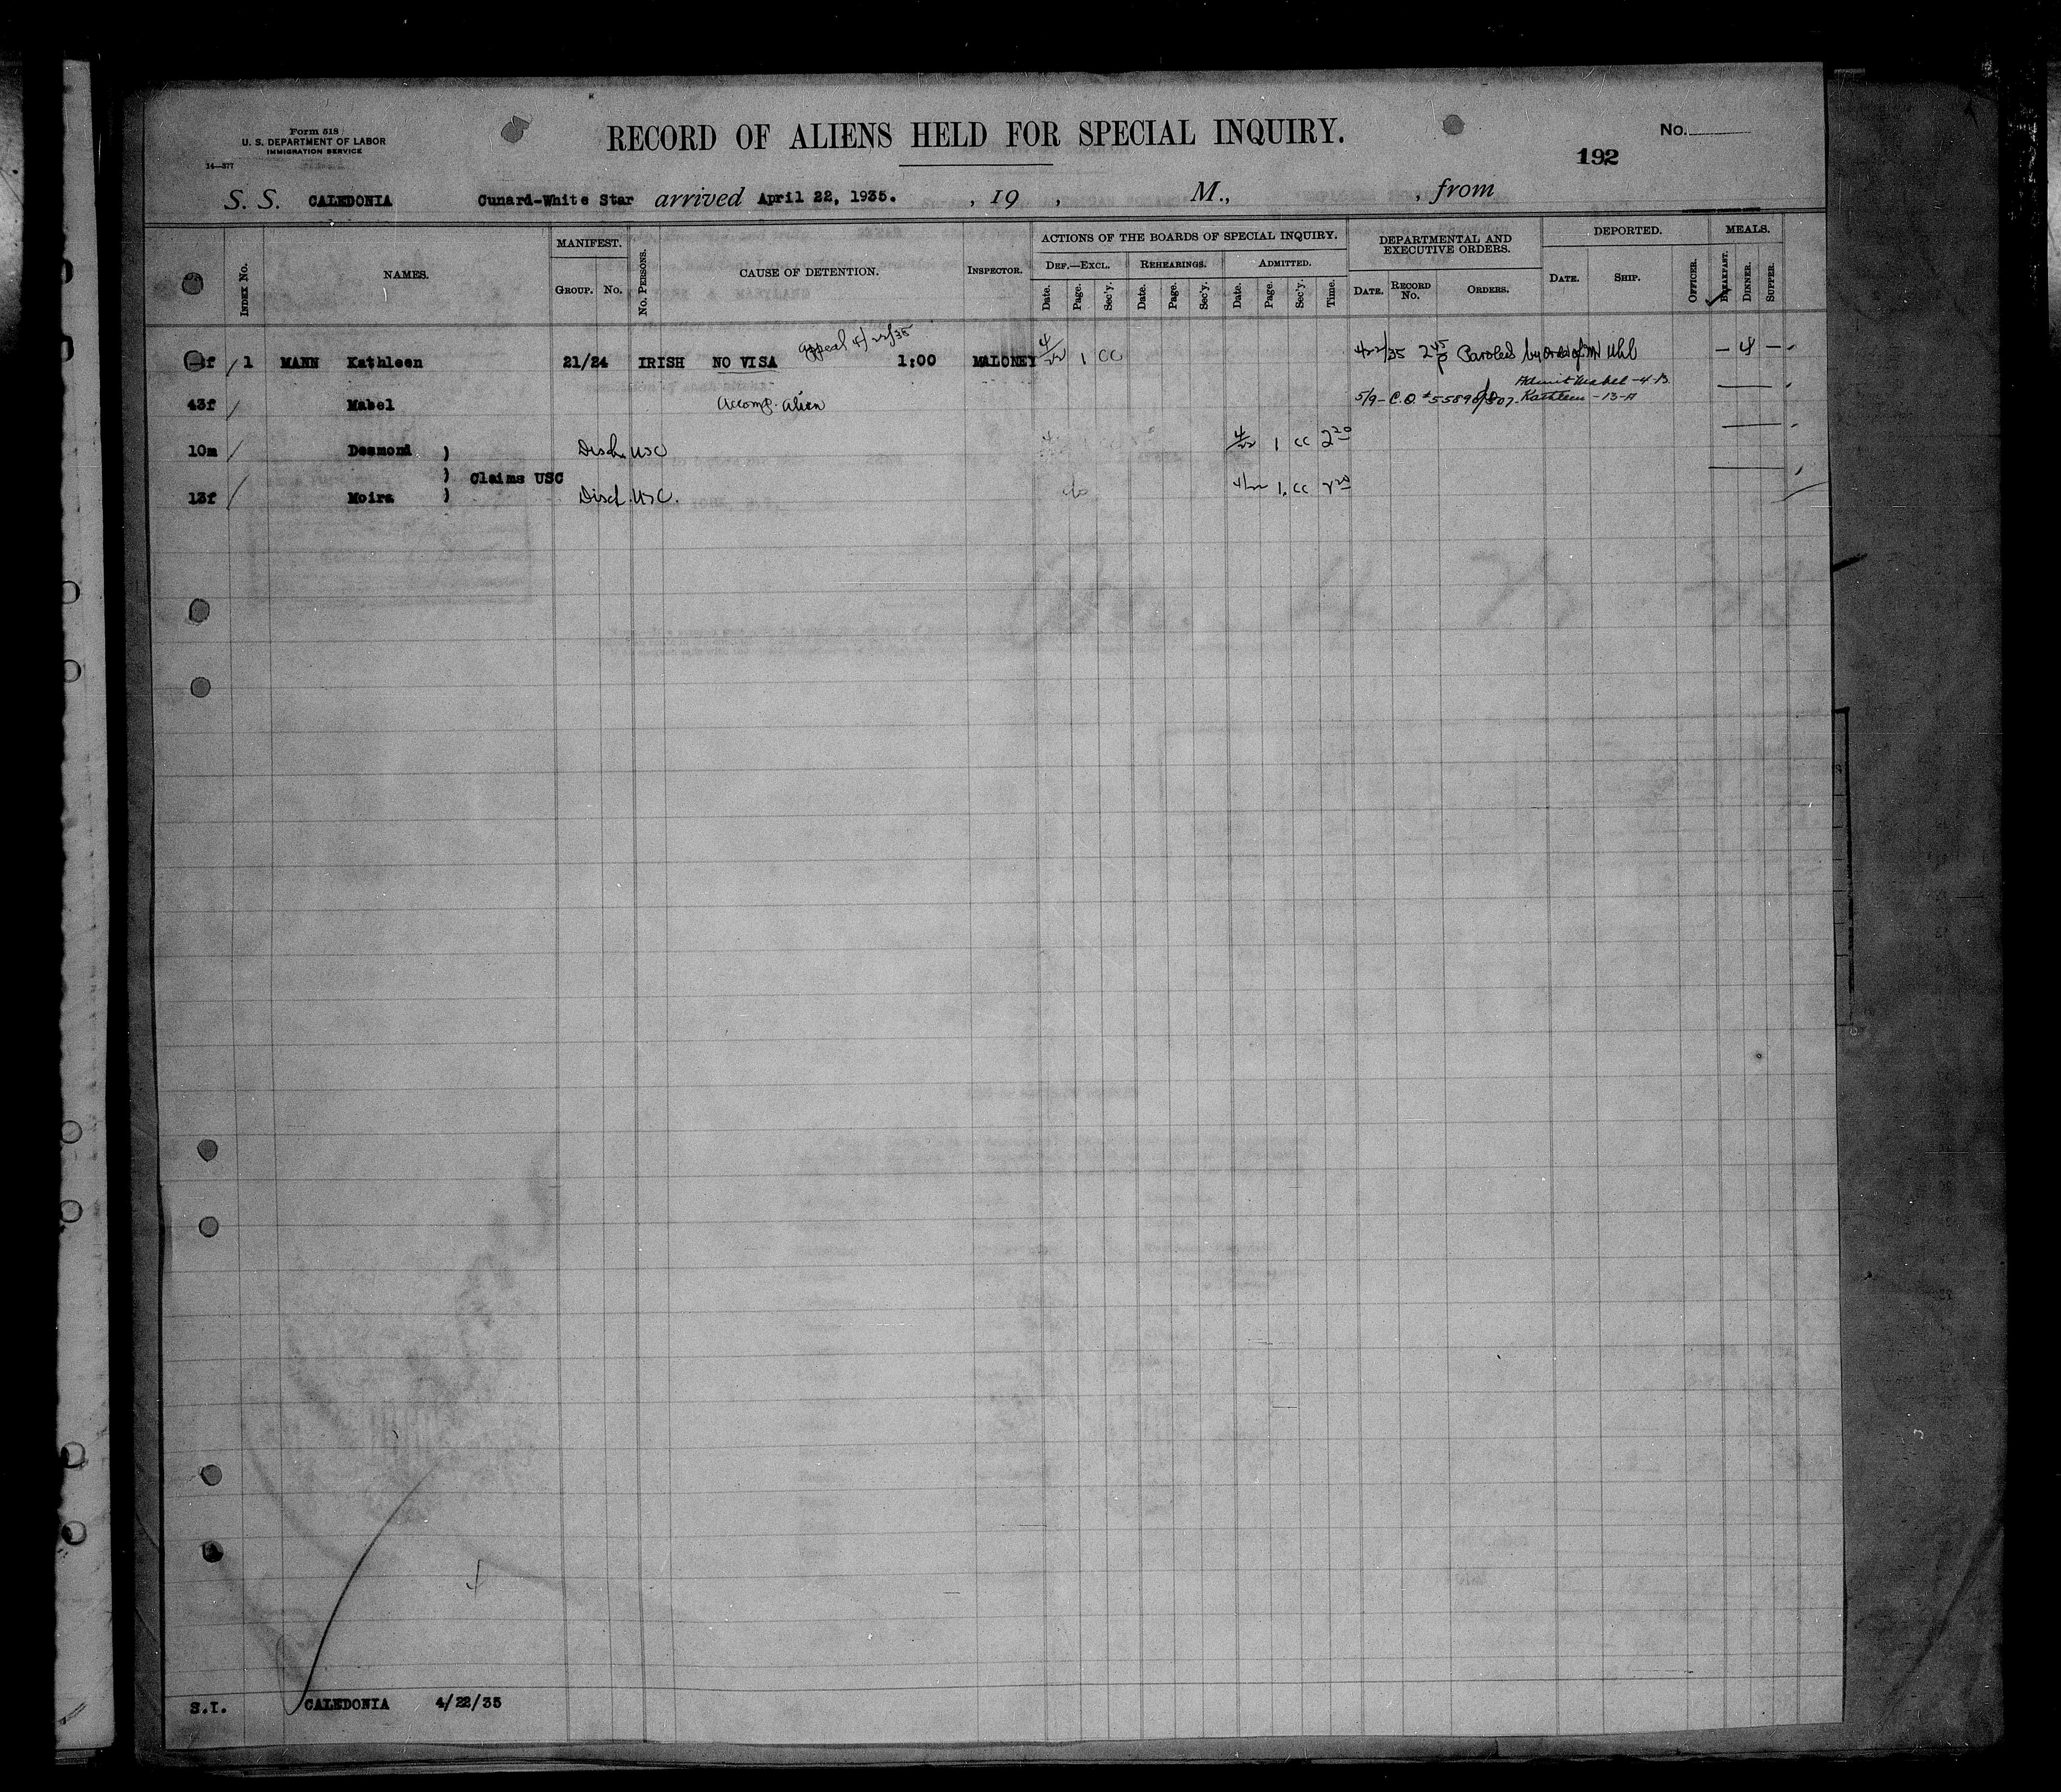 Form 518
U. S. DEPARTMENT OF LABOR
IMMIGRATION SERVICE
14—377
RECORD OF ALIENS HELD FOR SPECIAL INQUIRY.
No.
192
S. S. CALEDONIA Cunard-White Star arrived April 22, 1935. , 19 , M., , from
INDEX No. NAMES. MANIFEST. GROUP. No. No. PERSONS. CAUSE OF DETENTION. INSPECTOR.
ACTIONS OF THE BOARDS OF SPECIAL INQUIRY. DEF.—EXCL. Date. Page. Sec'y. REHEARINGS. Date. Page. Sec'y. ADMITTED. Date. Page. Sec'y. Time.
DEPARTMENTAL AND EXECUTIVE ORDERS. DATE. RECORD No. ORDERS.
DEPORTED. DATE. SHIP. OFFICER.
MEALS. BREAKFAST. DINNER. SUPPER.
appeal 4/22/35
f 1 MANN Kathleen 21/24 IRISH NO VISA 1:00 MALONEY 4/22 1 CC 4/22/35 2 45 P Paroled by order of Mr Uhl – 4 –
Admit Mabel - 4-B
43f Mabel Accomp. alien 5/9 - C.O. # 55896/807 - Kathleen - 13-A
10m Desmond ) Disch. USC 4/22 1 CC 2 20
) Claims USC
13f Moira ) Disch. USC. 4/22 1. CC 2 20
S.I. CALEDONIA 4/22/35